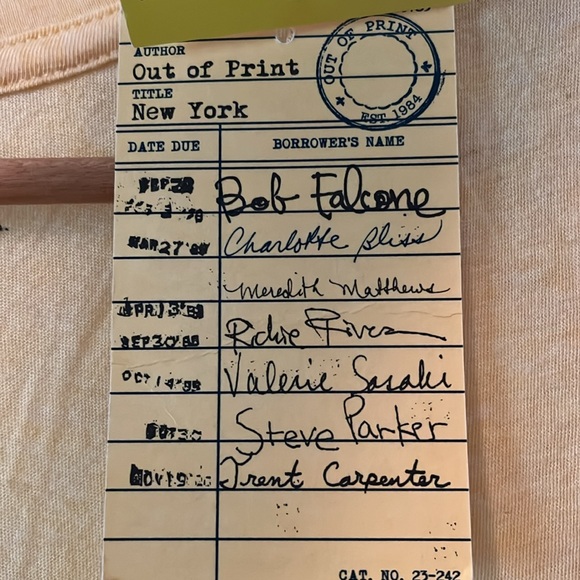 AUTHOR
Out of Print
TITLE
New York
OUT OF PRINT
EST. 1984
DATE DUE BORROWER'S NAME
Bob Falcone
MAR 27 Charlotte Bliss
Meredith Matthews
SEP 30 Richie Rivera
OCT 14 Valerie Sasaki
Steve Parker
NOV 19 Trent Carpenter
CAT. NO. 23-242